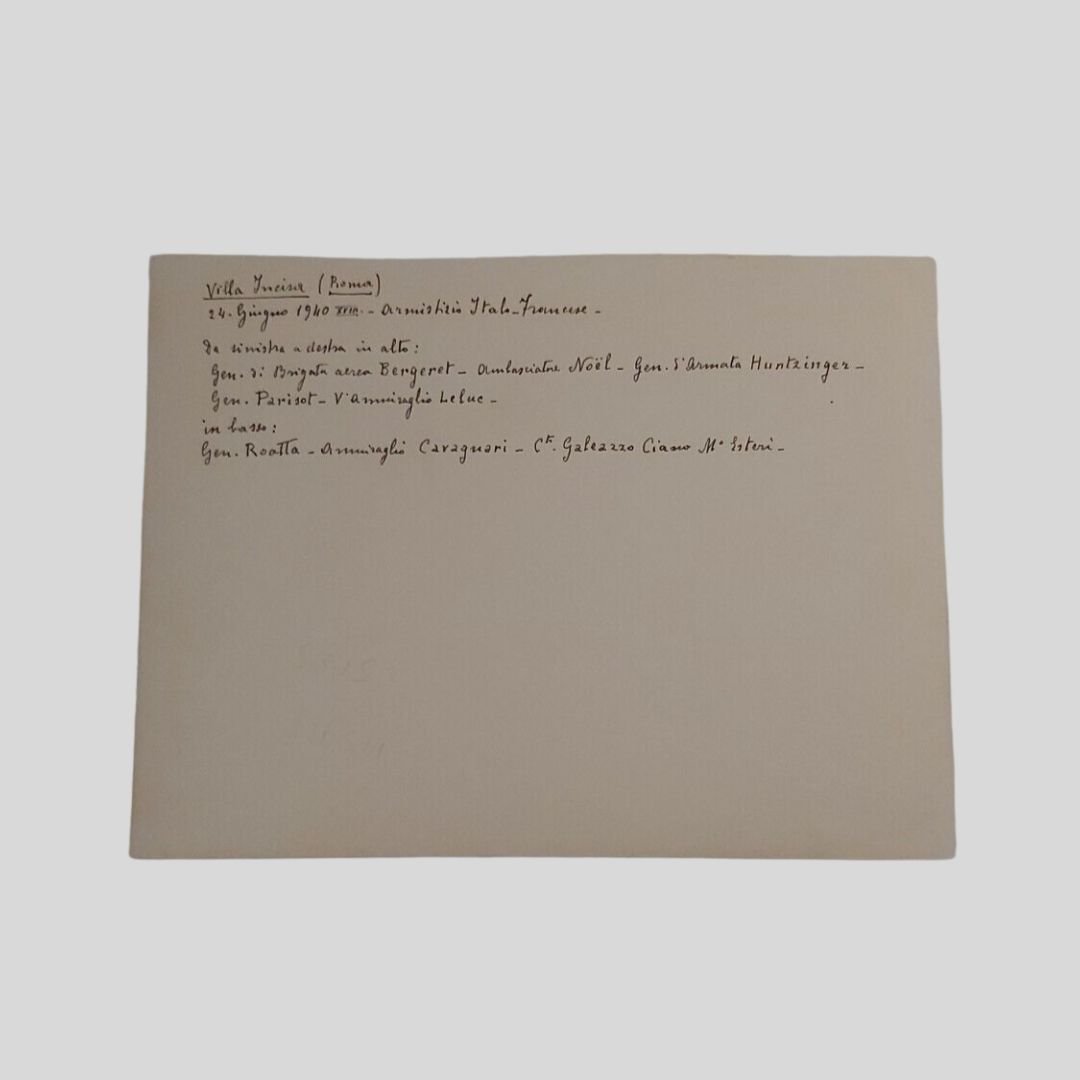 Villa Incisa (Roma)
24. Giugno 1940 XVIII. - Armistizio Italo-Francese -
Da sinistra a destra in alto:
Gen. di Brigata aerea Bergeret - Ambasciatore Noël - Gen. d'Armata Huntzinger -
Gen. Parisot - V'Ammiraglio Leluc -
in basso:
Gen. Roatta - Ammiraglio Cavagnari - Cte. Galeazzo Ciano Mo Esteri -